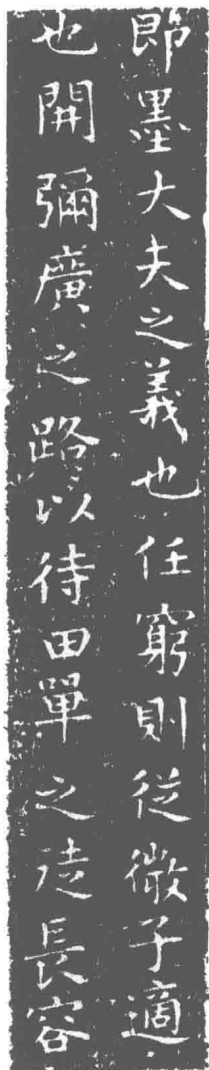 即墨大夫之義也任窮則従微子適
也開彌廣之路以待田單之徒長容